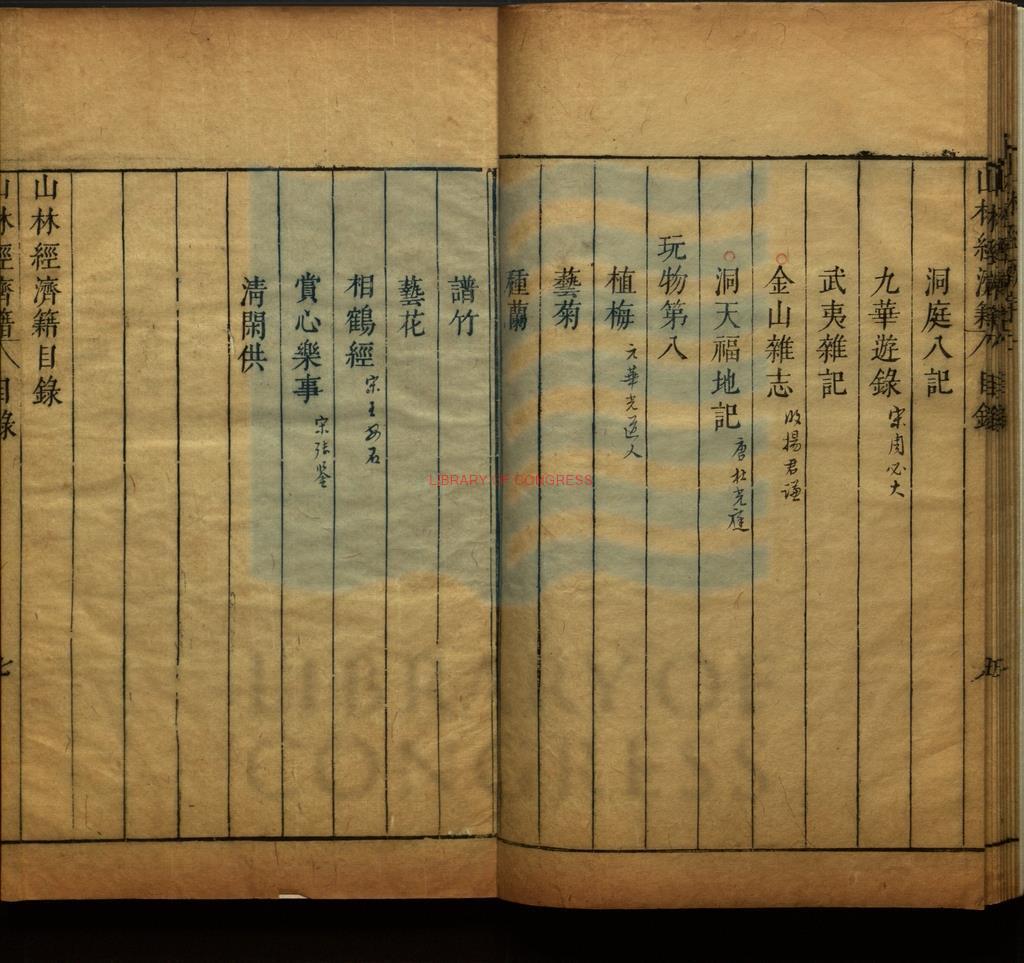 山林經濟籍 目錄
洞庭八記
九華遊錄 宋周必大
武夷雜記
金山雜志 明楊君謙
洞天福地記 唐杜光庭
玩物第八
植梅 元華光道人
藝菊
種蘭
譜竹
藝花
相鶴經 宋王安石
賞心樂事 宋張鎡
淸閑供
山林經濟籍目錄
山林經濟籍 目錄
七
LIBRARY OF CONGRESS